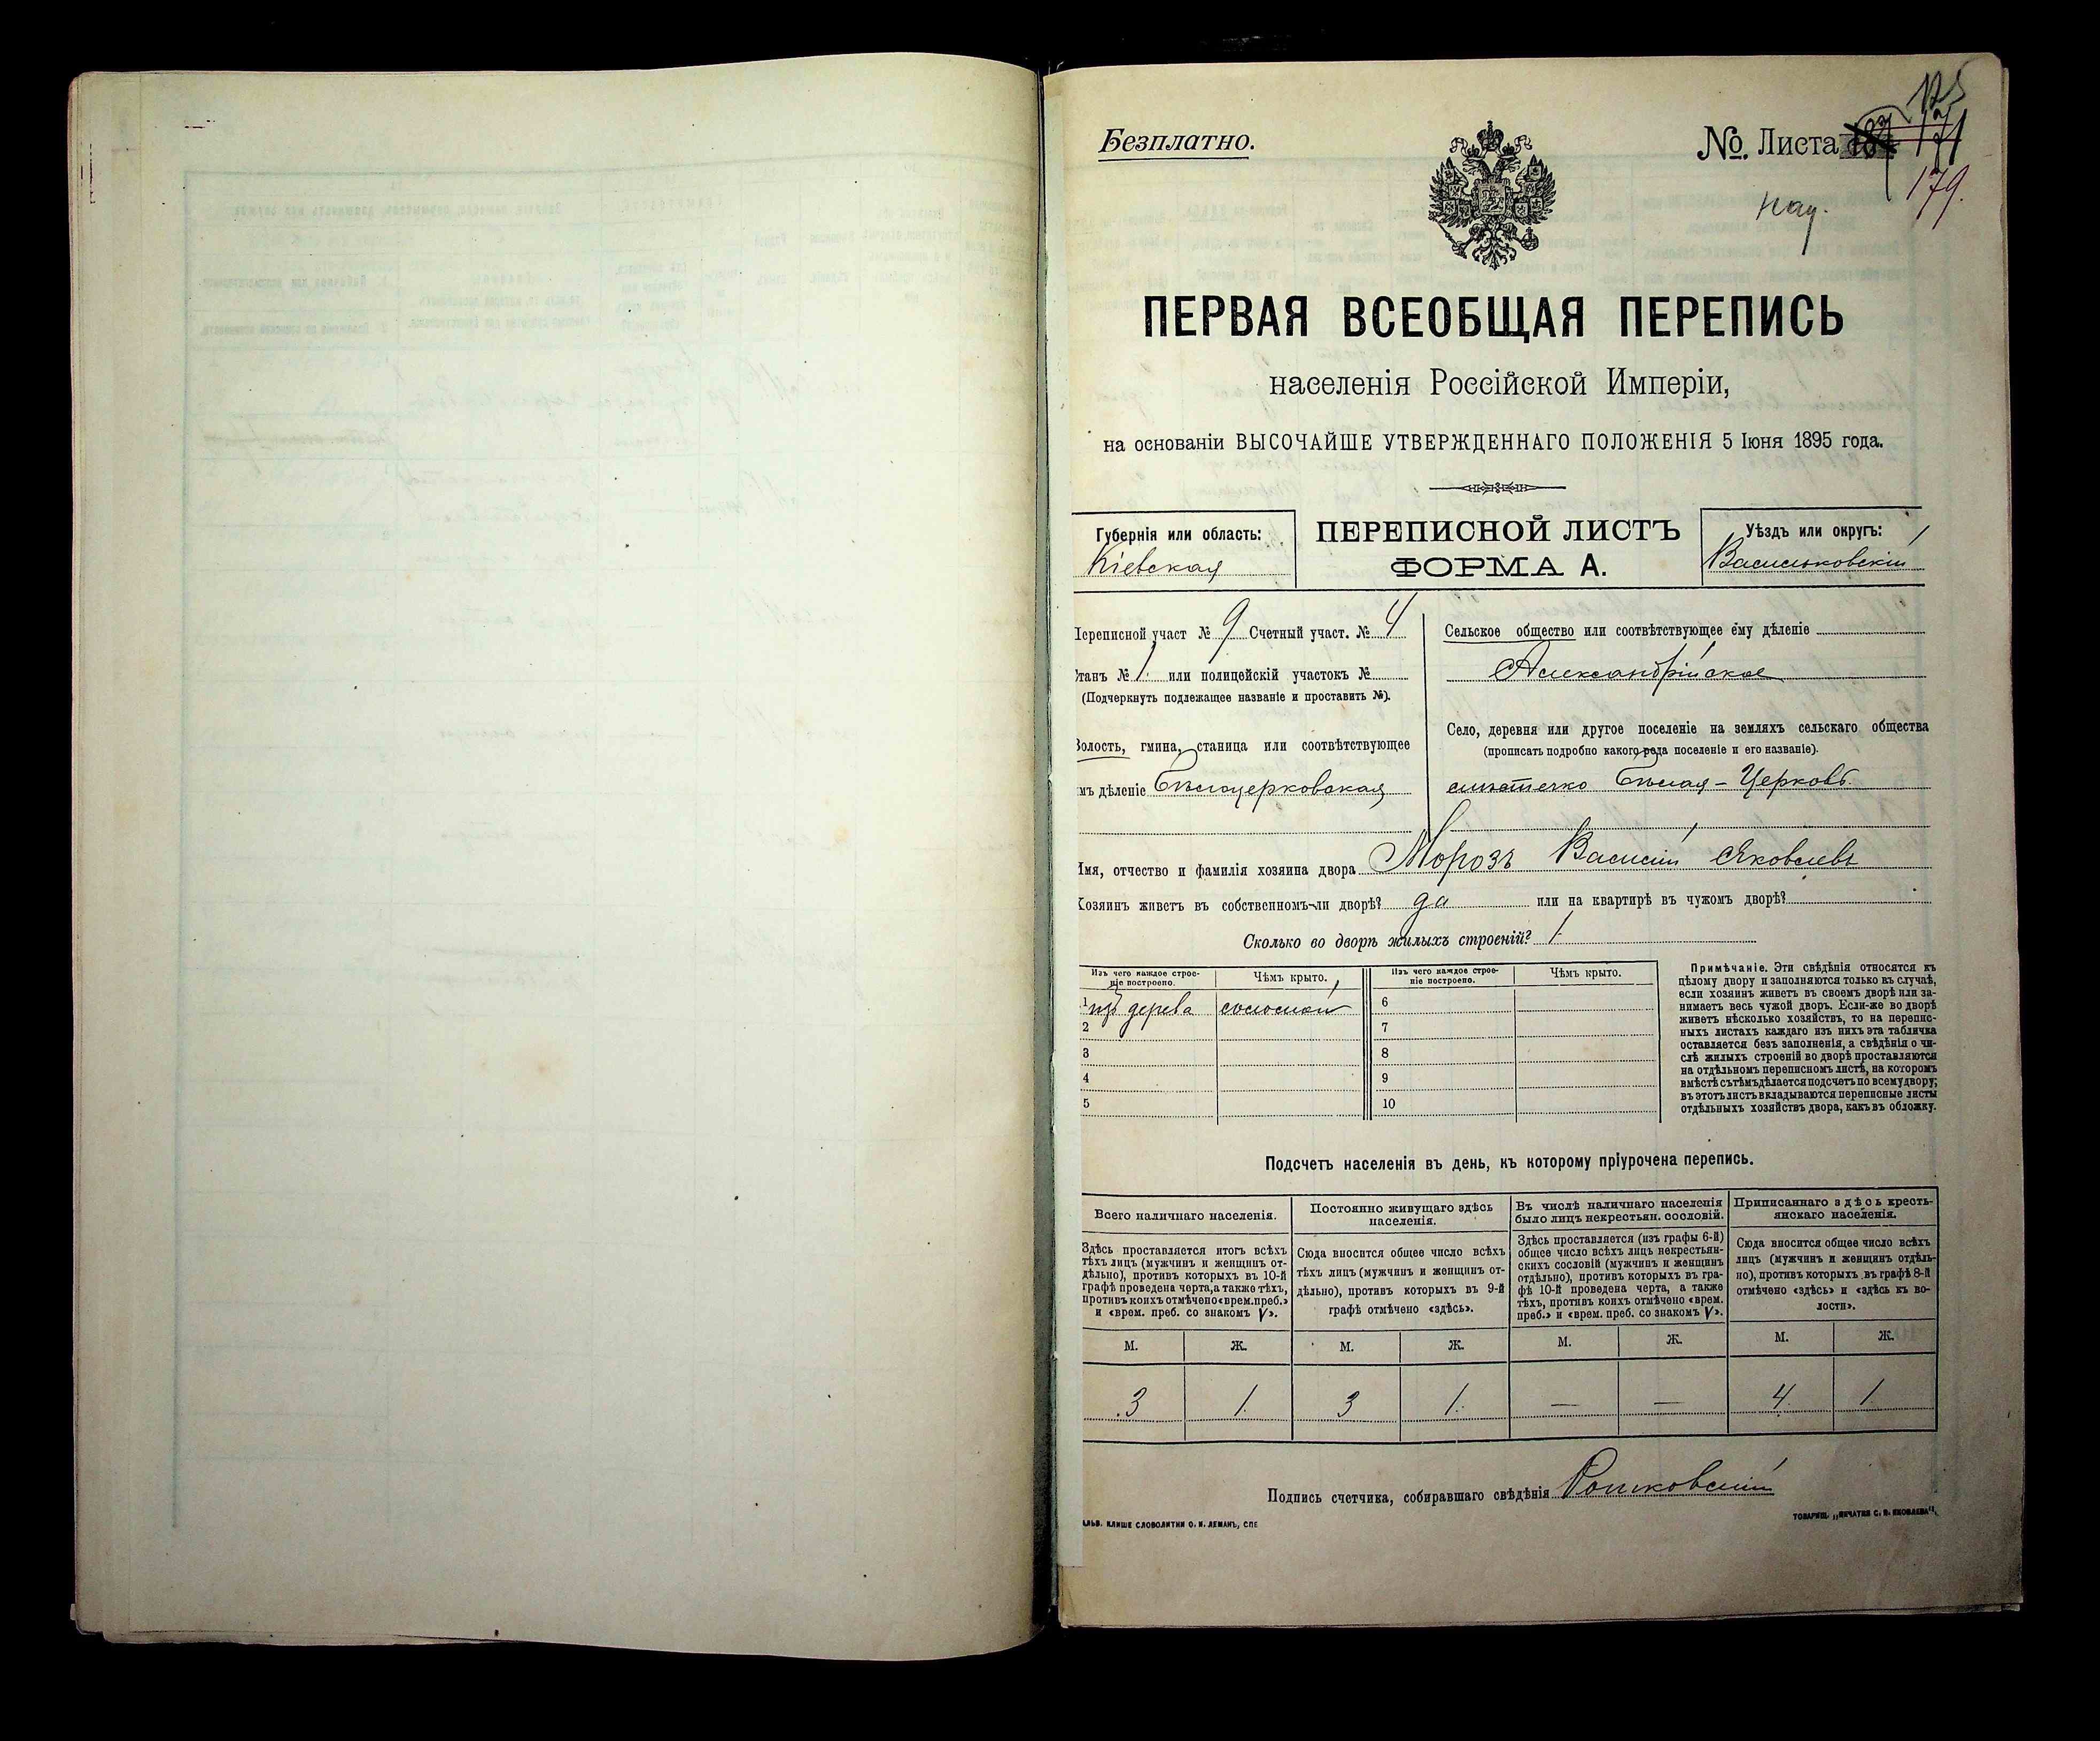 Безплатно.
№ Листа
171
179.
ПЕРВАЯ ВСЕОБЩАЯ ПЕРЕПИСЬ
населенія Россійской Имперіи,
на основаніи ВЫСОЧАЙШЕ УТВЕРЖДЕННАГО ПОЛОЖЕНІЯ 5 Іюня 1895 года.
Губернія или область:
Кіевская
ПЕРЕПИСНОЙ ЛИСТЪ
ФОРМА А.
Уѣздъ или округъ:
Васильковскій
Переписной участ № 9 Счетный участ. № 4
Станъ № 1 или полицейскій участокъ №
(Подчеркнуть подлежащее названіе и проставить №).
Волость, гмина, станица или соотвѣтствующее
имъ дѣленіе Бѣлоцерковская
Сельское общество или соотвѣтствующее ему дѣленіе
Александрійское
Село, деревня или другое поселеніе на земляхъ сельскаго общества
(прописать подробно какого рода поселеніе и его названіе).
мѣстечко Бѣлая-Церковь
Имя, отчество и фамилія хозяина двора Морозъ Василій Яковлевъ
Хозяинъ живетъ въ собственномъ-ли дворѣ? да или на квартирѣ въ чужомъ дворѣ?
Сколько во дворѣ жилыхъ строеній? 1
Изъ чего каждое строе-
ніе построено.
Чѣмъ крыто.
Изъ чего каждое строе-
ніе построено.
Чѣмъ крыто.
1 изъ дерева соломой
2
3
4
5
6
7
8
9
10
Примѣчаніе. Эти свѣдѣнія относятся къ
цѣлому двору и заполняются только въ случаѣ,
если хозяинъ живетъ въ своемъ дворѣ или за-
нимаетъ весь чужой дворъ. Если-же во дворѣ
живетъ нѣсколько хозяйствъ, то на перепис-
ныхъ листахъ каждаго изъ нихъ эта табличка
оставляется безъ заполненія, а свѣдѣнія о чи-
слѣ жилыхъ строеній во дворѣ проставляются
на отдѣльномъ переписномъ листѣ, на которомъ
вмѣстѣ съ тѣмъ дѣлается подсчетъ по всему двору;
въ этотъ листъ вкладываются переписные листы
отдѣльныхъ хозяйствъ двора, какъ въ обложку.
Подсчетъ населенія въ день, къ которому пріурочена перепись.
Всего наличнаго населенія.
Здѣсь проставляется итогъ всѣхъ
тѣхъ лицъ (мужчинъ и женщинъ от-
дѣльно), противъ которыхъ въ 10-й
графѣ проведена черта, а также тѣхъ,
противъ коихъ отмѣчено «врем. преб.»
и «врем. преб. со знакомъ V».
М. Ж.
3 1
Постоянно живущаго здѣсь
населенія.
Сюда вносится общее число всѣхъ
тѣхъ лицъ (мужчинъ и женщинъ от-
дѣльно), противъ которыхъ въ 9-й
графѣ отмѣчено «здѣсь».
М. Ж.
3 1
Въ числѣ наличнаго населенія
было лицъ некрестьян. сословій.
Здѣсь проставляется (изъ графы 6-й)
общее число всѣхъ лицъ некрестьян-
скихъ сословій (мужчинъ и женщинъ
отдѣльно), противъ которыхъ въ гра-
фѣ 10-й проведена черта, а также
тѣхъ, противъ коихъ отмѣчено «врем.
преб.» и «врем. преб. со знакомъ V».
М. Ж.
— —
Приписаннаго здѣсь кресть-
янскаго населенія.
Сюда вносится общее число всѣхъ
лицъ (мужчинъ и женщинъ отдѣль-
но), противъ которыхъ въ графѣ 8-й
отмѣчено «здѣсь» и «здѣсь къ во-
лости».
М. Ж.
4 1
Подпись счетчика, собиравшаго свѣдѣнія
КЛИШЕ СЛОВОЛИТНИ О. И. ЛЕМАНЪ, СПБ
ТОВАРИЩ. „ПЕЧАТНЯ С. П. ЯКОВЛЕВА".